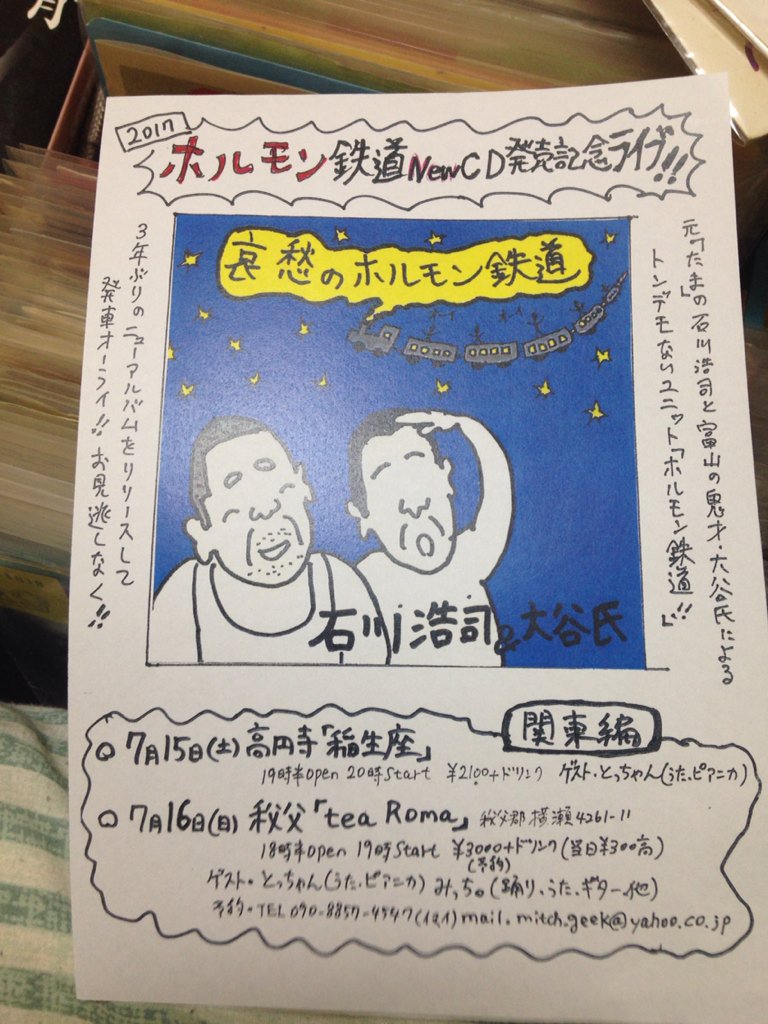 2017
ホルモン鉄道NewCD発売記念ライブ!!
元「たま」の石川浩司と富山の鬼才・大谷氏による
トンデモないユニット「ホルモン鉄道」!!
哀愁のホルモン鉄道
石川浩司&大谷氏
3年ぶりのニューアルバムをリリースして
発車オーライ!! お見逃しなく!!
関東編
○ 7月15日(土) 高円寺「稲生座」
19時半open 20時start ¥2100+ドリンク ゲスト・とっちゃん(うた、ピアニカ)
○ 7月16日(日) 秩父「tea Roma」 秩父郡横瀬4261-11
18時半open 19時start ¥3000+ドリンク(当日¥300高)
(予約)
ゲスト・とっちゃん(うた、ピアニカ) みっち。(踊り、うた、ギター、他)
予約・TEL 090-8857-4547 mail. mitch.geek@yahoo.co.jp